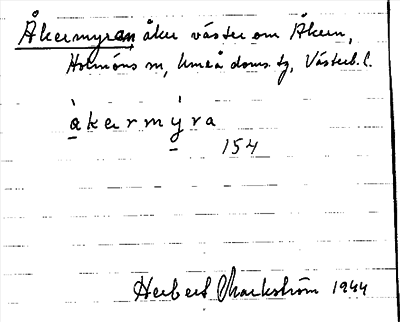 Åkermyran, åker väster om Åkern,
Holmöns sn, Umeå doms. tg, Västerb. l.
àkarmýra
154
Herbert Markström 1944